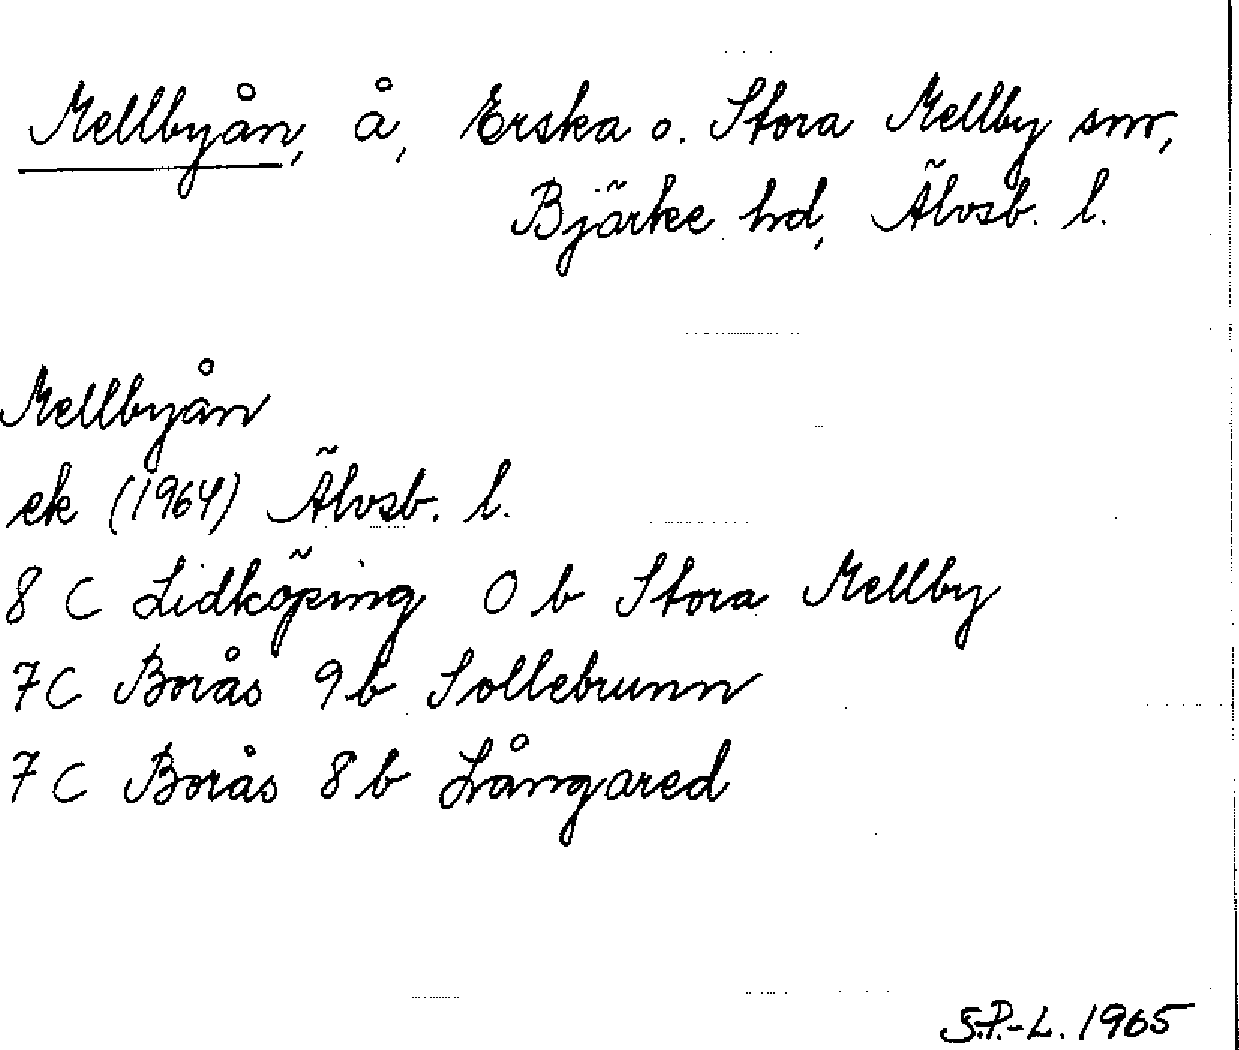 Mellbyån, å, Erska o. Stora Mellby snr,
Bjärke hd, Älvsb. l.
Mellbyån
ek (1964) Älvsb. l.
8 C Lidköping 0 b Stora Mellby
7 C Borås 9 b Sollebrunn
7 C Borås 8 b Långared
S.P.-L. 1965